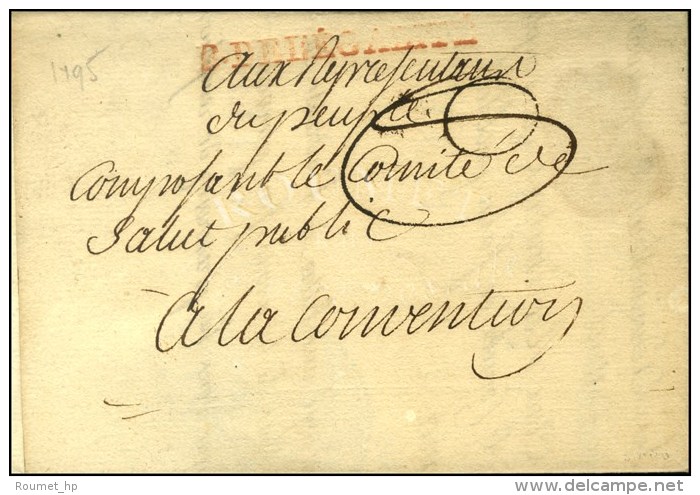 1795
Aux Representans
du peuple
Composant le Comité de
Salut public
A la Convention
Roumet_hp
www.delcampe.net